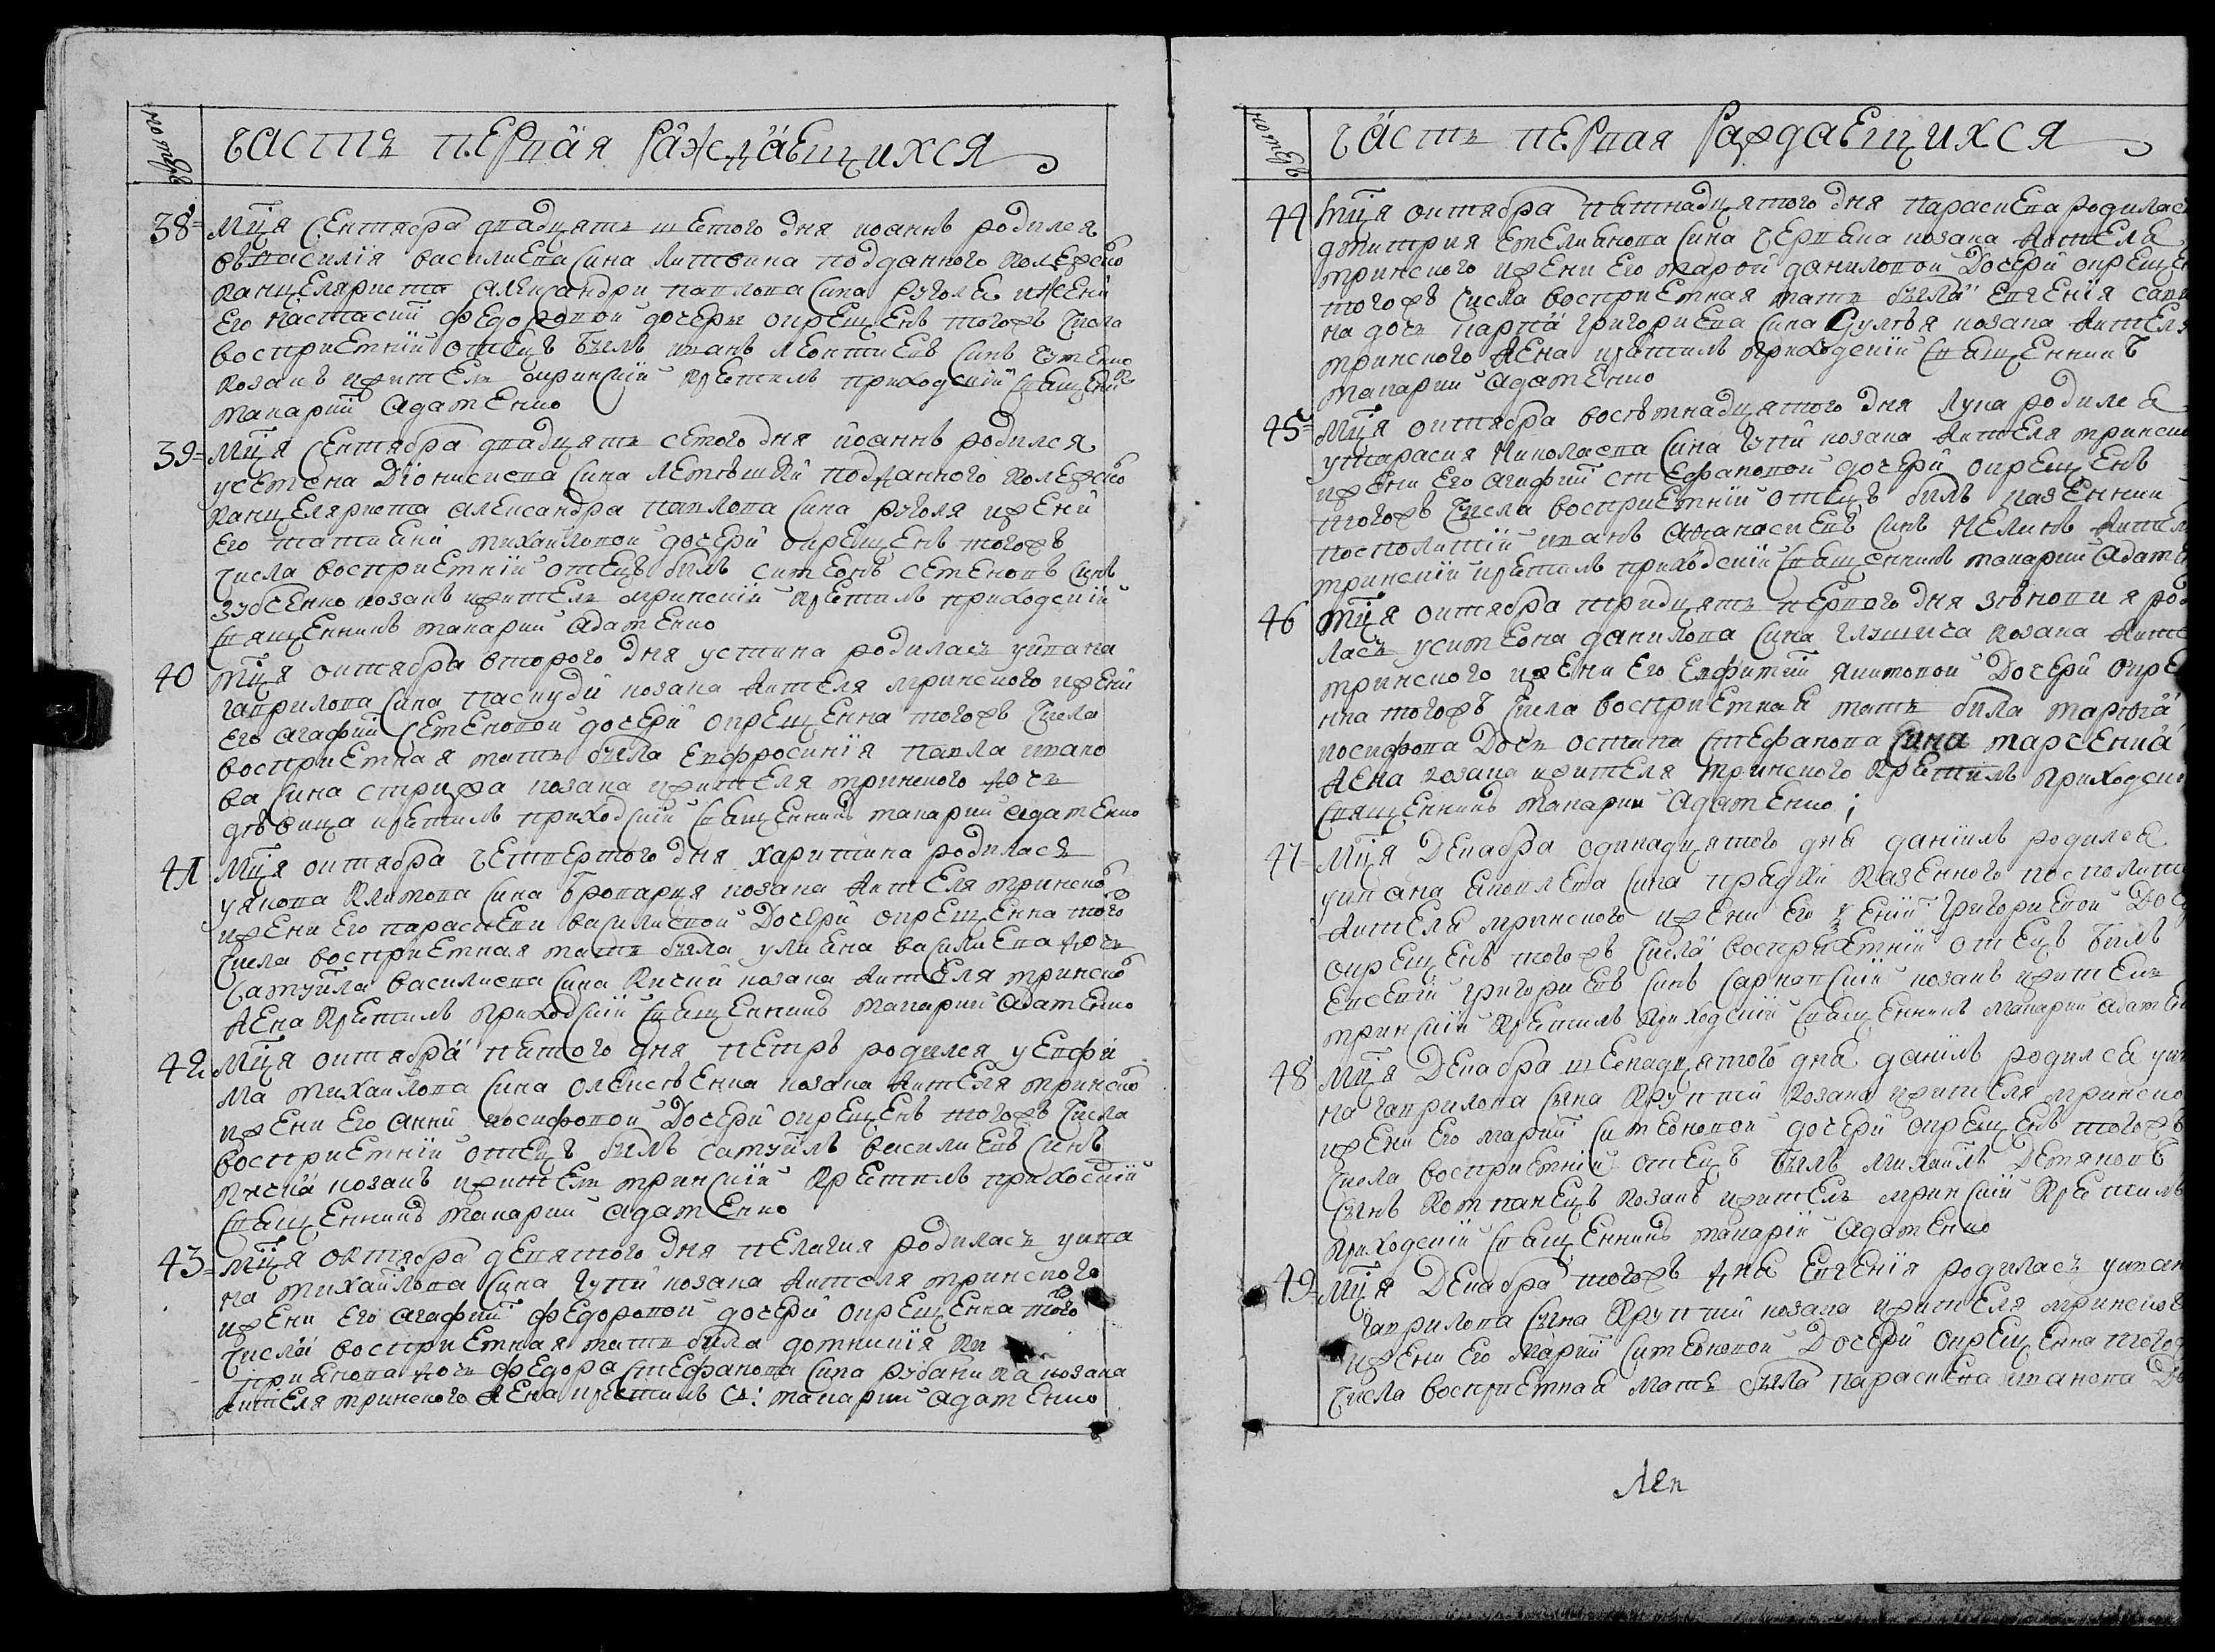 нумеръ
часть первая раждаещихся
38 Мця сентября двадцять шетого дня иоаннъ родился
василиева сина Литвина подданного колежско
канцеляриста александри павлова сина руголя ижени
его настасий федоровой дочеры окрещенъ тогожъ числа
восприемний отецъ былъ иванъ леонтиевъ синъ
козакъ жителъ мринский крестилъ приходский священикъ
макарий адаменко
39 Мця сентября двадцять семого дня иоаннъ родился
усемена дионисиева сина подданного колежско
канцеляриста александра павлова сина руголя ижени
его татияни михайловой дочери окрещенъ тогожъ
числа восприемний отецъ билъ симеонъ семеновъ синъ
зубченко козакъ жителъ мринский крестилъ приходский
священникъ макарий адаменко
40 мця октября второго дня устина родиласъ уивана
гаврилова сина пасқуди козака жителя мринского ижени
его агафий семеновой дочери окрещенна тогожъ числа
восприемная мать была евфросиния павла ивано
ва сина стрижа козака жителя мринского дочь
дѣвица крестилъ приходский священникъ макарий адаменко
41 Мця октября четвертого дня харитина родилась
уякова климова сина броварця козака жителя мринско
ижени его параскеви василиевой дочери окрещенна того
числа восприемная мать была улияна василиева дочь
самуйла василиева сина козака жителя мринско
жена крестилъ приходский священникъ макарий адаменко
42 Мця октября пятого дня петръ родился уевфи
ма михайлова сина олексѣенка козака жителя мринско
ижени его анни иосифовой дочери окрещенъ тогожъ числа
восприемний отецъ былъ самуйлъ василиевъ синъ
козакъ жителъ мринский крестилъ приходский
священникъ макарий адаменко
43 мця октября девятого дня пелагия родиласъ уива
на михайлова сина козака жителя мринского
ижени его агафий федоровой дочери окрещенна того
числа восприемная мать била домникия ки
приянова дочь федора стефанова сина рубаника козака
жителя мринского жена крестилъ с: макарий адаменко
нумеръ
часть первая раждаещихся
44 мця октября пятнадцятого дня параскева родилас
дмитрия емелиянова сина червяка козака жителя
мринского ижени его марой даниловой дочери окреще
тогожъ числа восприемная мать была евгения
на дочь карпа григориева сина козака жителя
мринского жена крестилъ приходский священникъ
макарий адаменко
45 Мця октября восѣмнадцятого дня лука родился
утарасия николаева сина козака жителя мринско
ижени его агафий стефановой дочери окрещенъ
тогожъ числа восприемний отецъ билъ казенний
посполитий иванъ афанасиевъ синъ жител
мринский крестилъ приходский священникъ макарий адаме
46 мця октября тридцять первого дня зѣновия ро
ласъ усимеона данилова сина козака жите
мринского ижени его евфимий якимовой дочери окре
нна тогожъ числа восприемная мать била марфа
иосифова дочь остапа стефанова сина марченка
жена козака жителя мринского крестилъ приходски
священникъ макарий адаменко;
47 Мця декабра одинадцятого дня даниилъ родился
уивана яковлева сина прадки казенного посполито
жителя мринского ижени его ксений григориевой доч
окрещенъ тогожъ числа восприемний отецъ былъ
евсевий григориевъ синъ сарновский козакъ жителъ
мринский крестилъ приходский священникъ макарий адамен
48 Мця декабра шеснадцятого дня данилъ родился уив
на гаврилова сына крутий козака жителя мринско
ижени его марий симеоновой дочери окрещенъ тогожъ
числа восприемний отецъ былъ михайлъ демяновъ
сынъ компанецъ козакъ жителъ мринский крестилъ
приходский священникъ макарий адаменко
49 Мця декабра тогожъ дня евгения родиласъ уиван
гаврилова сына крутий козака жителя мринског
ижени его марий симеоновой дочери окрещенна того
числа восприемная мать была параскева иванова до